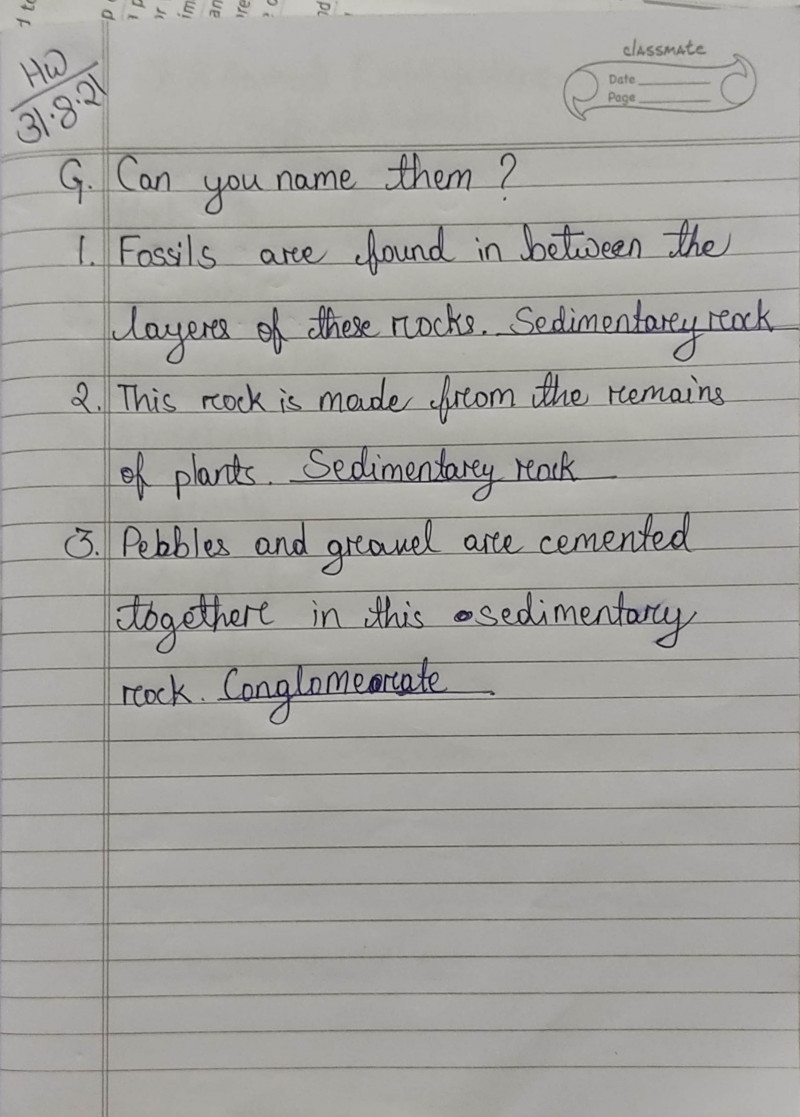 HW
31.8.21
classmate
Date
Page
G. Can you name them ?
1. Fossils are found in between the
layers of these rocks. Sedimentary rock
2. This rock is made from the remains
of plants. Sedimentary rock
3. Pebbles and gravel are cemented
together in this sedimentary
rock. Conglomerate.